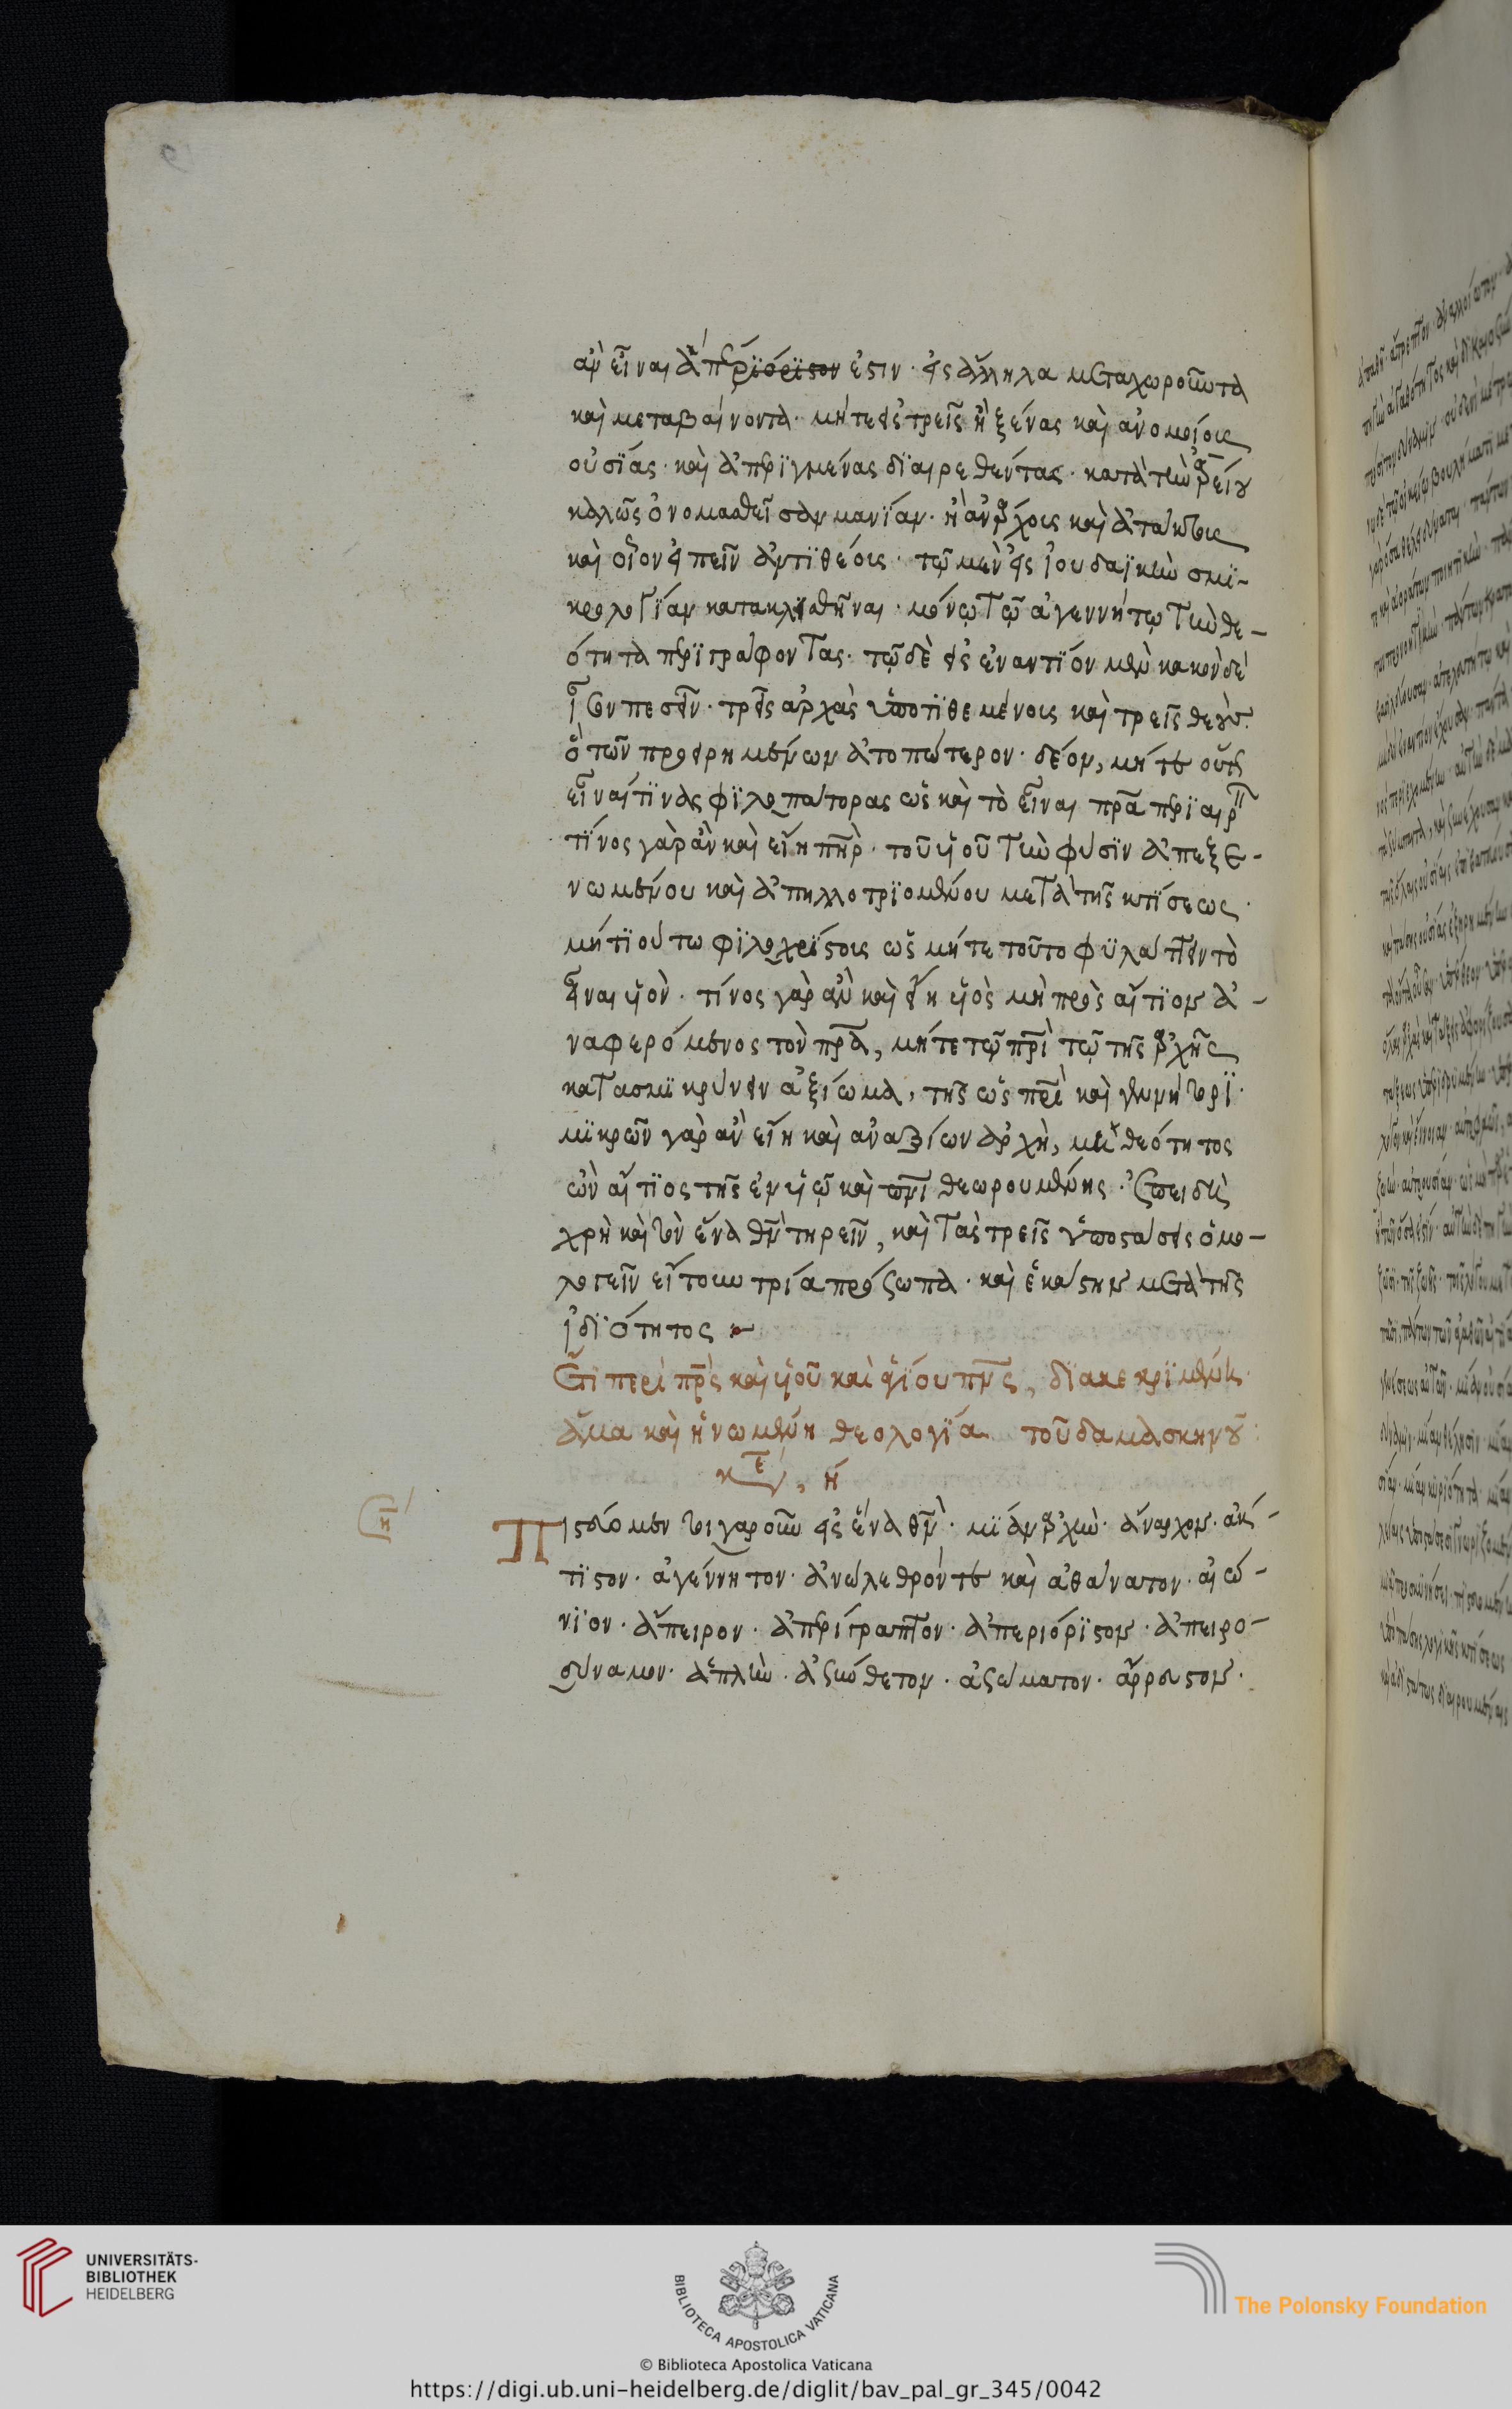 ἂν εἶναι ἀπεριόριστόν ἐστιν· εἰς ἄλληλα μεταχωροῦντα
καὶ μεταβαίνοντα· μήτε εἰς τρεῖς ἢ ξένας καὶ ἀνομοίοις
οὐσίας· καὶ ἀπερϊγμένας διαιρεθέντας· κατὰ τὴν ἀρείου
καλῶς ὀνομασθεῖσαν μανίαν· ἢ ἀνάρχοις καὶ ἀτάκτοις
καὶ οἷον εἰπεῖν ἀντιθέοις· τῷ μὲν εἰς ἰουδαϊκὴν σμι-
κρολογίαν κατακλεισθῆναι· μόνῳ τῷ ἀγεννήτῳ τὴν θε-
ότητα περιγράφοντας· τῷ δὲ εἰς ἐναντίον μὲν κακὸν δὲ
ἴσον πεσεῖν· τρεῖς ἀρχὰς ὑποτιθεμένοις καὶ τρεῖς θεούς·
ὃ τῶν προειρημένων ἀτοπώτερον· δέον, μήτε οὕτως
εἶναί τινας φιλοπάτορας ὡς καὶ τὸ εἶναι πρα περιαιρ
τίνος γὰρ ἂν καὶ εἴη πηρ· τοῦ υἱοῦ τὴν φύσιν ἀπεξε-
νωμένου καὶ ἀπηλλοτριομένου μετὰ τῆς κτίσεως·
μήτι οὕτω φιλοχρίστοις ὡς μήτε τοῦτο φυλάττειν τὸ
εἶναι υἱόν· τίνος γὰρ ἂν καὶ εἴη υἱὸς μὴ πρὸς αἴτιον ἀ-
ναφερόμενος τὸν πρα, μήτε τῷ πρι τῷ τῆς ἀρχῆς
κατασμικρύνειν ἀξίωμα, τῆς ὡς πρι καὶ γεννήτορι·
μικρῶν γὰρ ἂν εἴη καὶ ἀναξίων ἀρχή, μὴ θεότητος
ὢν αἴτιος τῆς ἐν υἱῷ καὶ πνι θεωρουμένης· ἐπειδὴ
χρὴ καὶ τὸν ἕνα θν τηρεῖν, καὶ τὰς τρεῖς ὑποστάσεις ὁμο-
λογεῖν εἴτουν τρία πρόσωπα· καὶ ἑκάστην μετὰ τῆς
ἰδιότητος
Ἔτι περὶ πρς καὶ υἱοῦ καὶ ἁγίου πνς, διακεκριμένη
ἅμα καὶ ἡνωμένη θεολογία τοῦ δαμασκηνοῦ
κε, ή
η
Πιστεύομεν τοιγαροῦν εἰς ἕνα θν· μίαν ἀρχὴν· ἄναρχον· ἄκ-
τιστον· ἀγέννητον· ἀνώλεθρόν τε καὶ ἀθάνατον· αἰώ-
νιον· ἄπειρον· ἀπερίγραπτον· ἀπεριόριστον· ἀπειρο-
δύναμον· ἁπλὴν· ἀσύνθετον· ἀσώματον· ἄρρευστον·
UNIVERSITÄTS-
BIBLIOTHEK
HEIDELBERG
BIBLIOTECA APOSTOLICA VATICANA
The Polonsky Foundation
© Biblioteca Apostolica Vaticana
https://digi.ub.uni-heidelberg.de/diglit/bav_pal_gr_345/0042